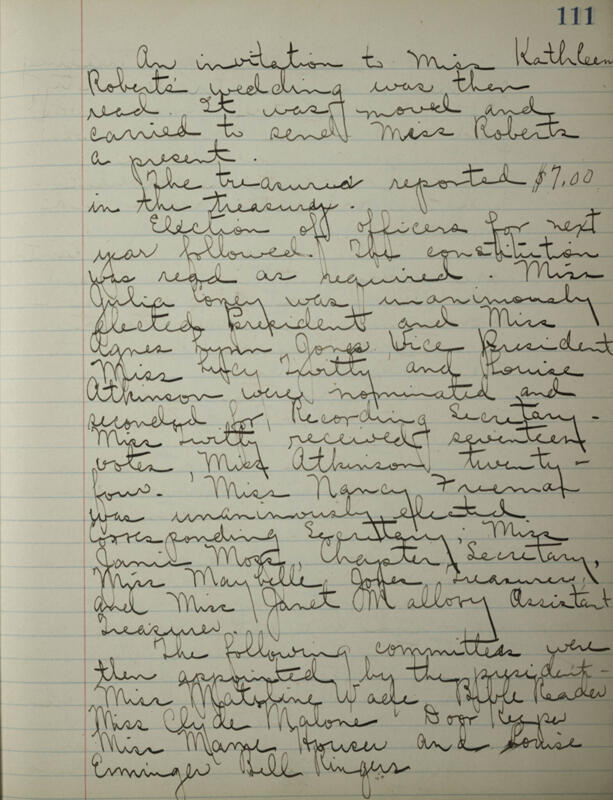 111
An invitation to Miss Kathleen
Roberts' wedding was then
read. It was moved and
carried to send Miss Roberts
a present.
The treasurer reported $7.00
in the treasury.
Election of officers for next
year followed. The constitution
was read as required. Miss
Julia Coney was unanimously
elected President and Miss
Agnes Lynn Jones Vice President
Miss Lucy Twitty and Louise
Atkinson were nominated and
seconded for Recording Secretary -
Miss Twitty received seventeen
votes, Miss Atkinson twenty-
four. Miss Nancy Freeman
was unanimously elected
Corresponding Secretary; Miss
Janie Moss, Chapter Secretary,
Miss Maybelle Jones, Treasurer,
and Miss Janet Mallory Assistant
Treasurer.
The following committees were
then appointed by the president -
Miss Wade Bible Reader
Miss Clyde Malone Door Keeper
Miss Houser and Louise
Erminger Bell Ringers